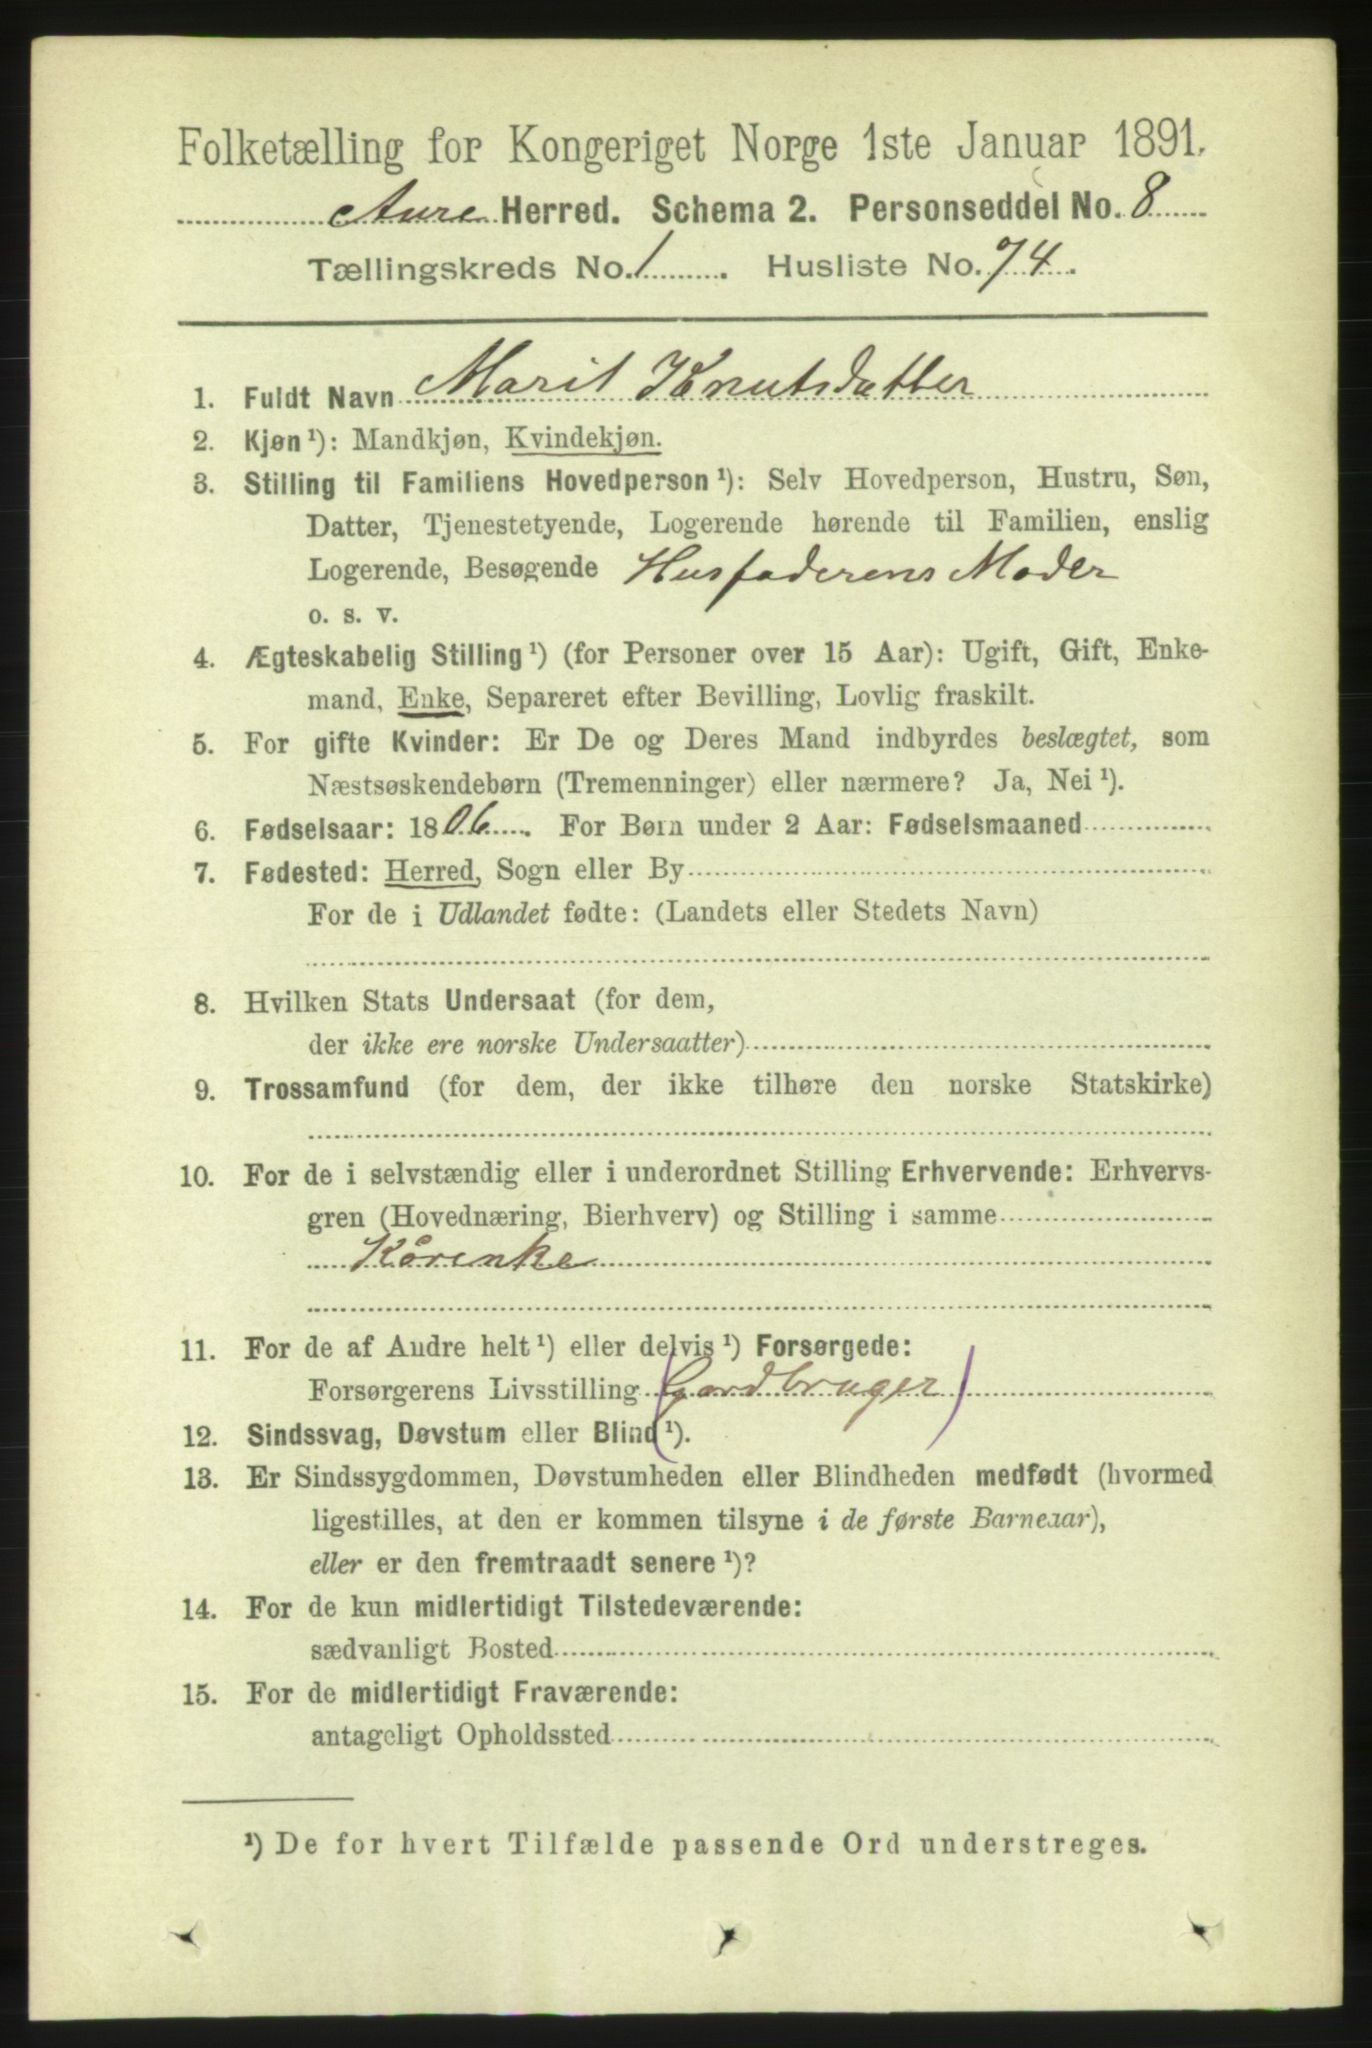 Folketælling for Kongeriget Norge 1ste Januar 1891.
Aure Herred. Schema 2. Personseddel No. 8
Tællingskreds No. 1. Husliste No. 74.
1. Fuldt Navn Marit Knutsdatter
2. Kjøn ¹): Mandkjøn, Kvindekjøn.
3. Stilling til Familiens Hovedperson ¹): Selv Hovedperson, Hustru, Søn,
Datter, Tjenestetyende, Logerende hørende til Familien, enslig
Logerende, Besøgende Husfaderens Moder
o. s. v.
4. Ægteskabelig Stilling ¹) (for Personer over 15 Aar): Ugift, Gift, Enke-
mand, Enke, Separeret efter Bevilling, Lovlig fraskilt.
5. For gifte Kvinder: Er De og Deres Mand indbyrdes beslægtet, som
Næstsøskendebørn (Tremenninger) eller nærmere? Ja, Nei ¹).
6. Fødselsaar: 1806. For Børn under 2 Aar: Fødselsmaaned
7. Fødested: Herred, Sogn eller By
For de i Udlandet fødte: (Landets eller Stedets Navn)
8. Hvilken Stats Undersaat (for dem,
der ikke ere norske Undersaatter)
9. Trossamfund (for dem, der ikke tilhøre den norske Statskirke)
10. For de i selvstændig eller i underordnet Stilling Erhvervende: Erhvervs-
gren (Hovednæring, Bierhverv) og Stilling i samme
Kårenke
11. For de af Andre helt ¹) eller delvis ¹) Forsørgede:
Forsørgerens Livsstilling (Gardbruger)
12. Sindssvag, Døvstum eller Blind ¹).
13. Er Sindssygdommen, Døvstumheden eller Blindheden medfødt (hvormed
ligestilles, at den er kommen tilsyne i de første Barneaar),
eller er den fremtraadt senere ¹)?
14. For de kun midlertidigt Tilstedeværende:
sædvanligt Bosted
15. For de midlertidigt Fraværende:
antageligt Opholdssted
¹) De for hvert Tilfælde passende Ord understreges.